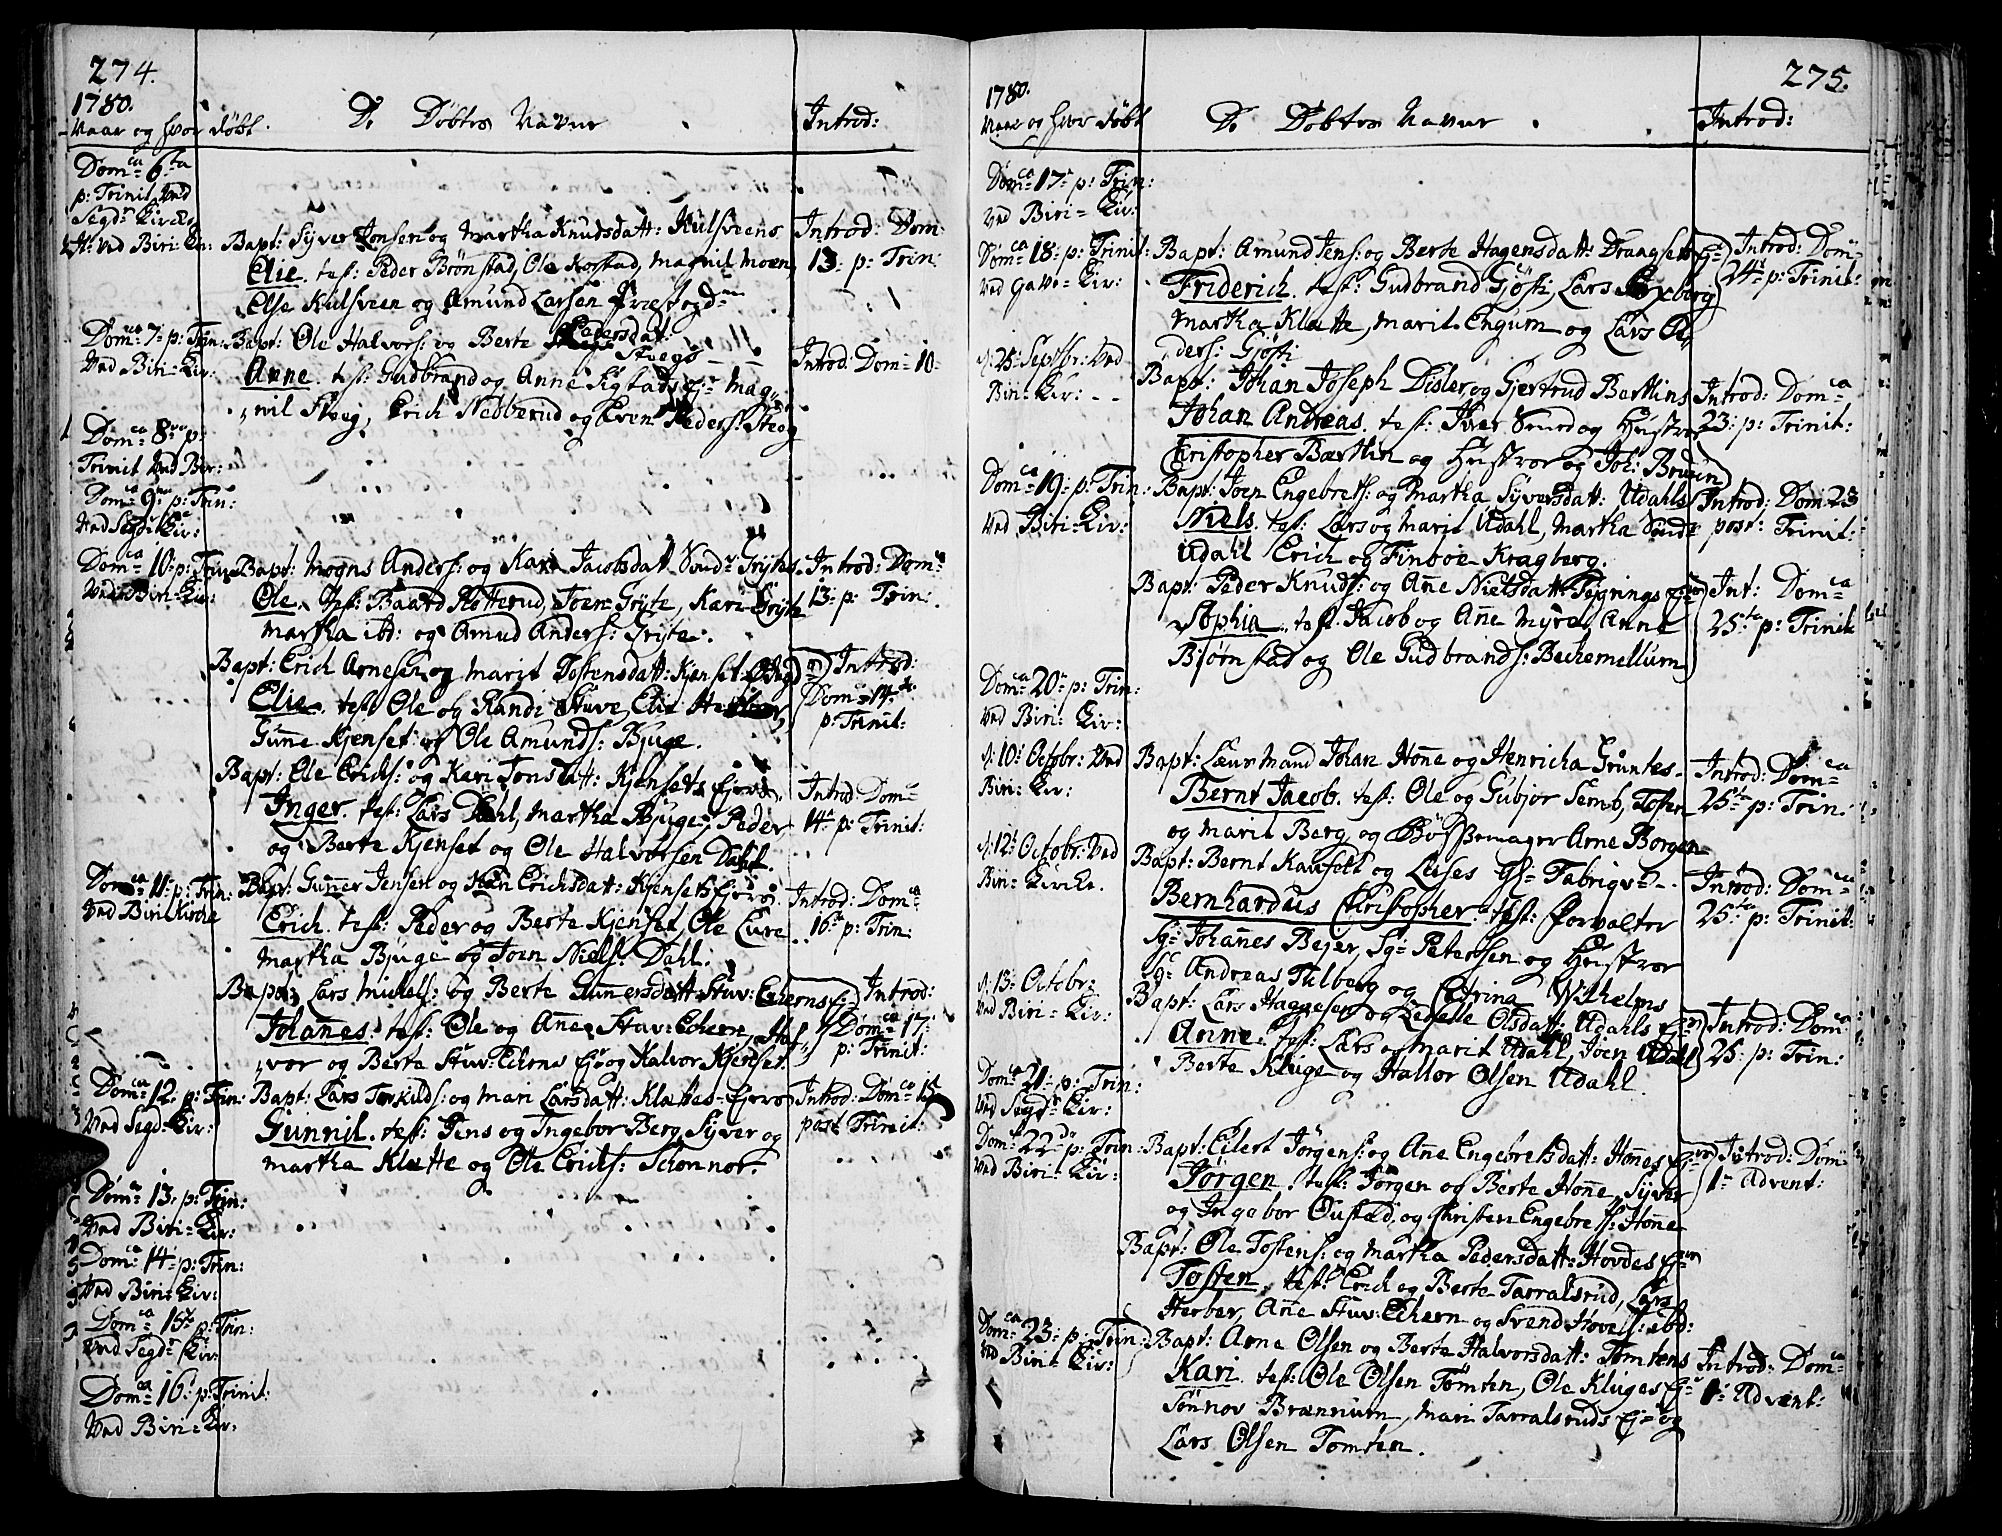 274.
1780.
Naar og hvor døbt.
De Døbtes Navne
Introd:
Dom:ca 6ta
p: Trinit Ved
Segd: Kirche
It: Ved Biri Kir:
Bapt: Syver Jonsen og Martha Knudsdatt: Hulsveens
Elie. test: Peder Brønstad, Ole Kostad, Magnil Moen,
Else Hulsveen og Amund Larsen Præstegd:
Introd: Dom:
13: p: Trin:
Dom: 7: p: Trin:
Ved Biri-Kir:
Bapt: Ole Halvors: og Berte Pedersdat:
Stegs
Anne. test: Gudbrand og Anne Mag-
nil Steg, Erich Nebberud og Even Peders: Steg
Introd: Dom: 10-
Dom:ca 8va p:
Trinit Ved Bir:
Dom:ca 9na p: Trin:
Ved Segd: Kir:
Dom:ca 10: p: Trin
Ved Biri-Kir:
Bapt: Mogns Anders: og Kari Jacobsdatt Sund: Gryte
Ole. test: Baard Slotterud, Joen Gryte, Kari Gryte
Martha ibd: og Amud Anders: Gryte.
Introd: Dom:
13: p: Trin:
Bapt: Erich Arnesen og Marit Tostensdatt: Kjenset
Elie. test Ole og Randi Stuve, Elie
Gunne Kjenset og Ole Amunds: Bjuge.
Introd:
Dom: 14:
p: Trinit:
Bapt: Ole Erichs: og Kari Jonsdatt: Kjensets Ejerd:
Inger. test: Lars Dahl, Martha Bjuge, Peder
og Berte Kjenset og Ole Halvorsen Dahl.
Introd: Dom:
14: p: Trinit:
Dom:ca 11: p: Trin:
Ved Biri Kirche
Bapt: Gunner Jensen og Erichsdatt: Kjensets Ejerd:
Erich. test: Peder og Berte Kjenset, Ole Lure
Martha Bjuge og Joen Niels: Dahl.
Introd: Dom:ca
16: p: Trin:
Bapt: Lars Michels: og Berte Gunnersdatt Stuv: Echerns Ej:
Johannes. test: Ole og Anne Stuv: Echern, Hal-
vor og Berte Stuv: Echerns Ej: og Halvor Kjenset.
Introd:
Dom:ca 17:
p: Trinit:
Dom:ca 12: p: Trin:
Ved Segd: Kir:
Bapt: Lars Torkilds: og Mari Larsdatt: Klattes-Ejere
Gunnil. test: Jens og Ingebor Berg, Syver og
Martha Klatte og Ole Erichs: Schonnor.
Introd: Dom:ca 15
post Trinit:
Dom:ca 13: p: Trin:
Ved Biri-Kir:
Dom:ca 14: p: Trin:
Ved Biri-Kir:
Dom:ca 15: p: Trin:
Ved Segd: Kir:
Dom:ca 16: p: Trinit:
Ved Biri-Kir:
275.
1780.
Naar og hvor døbt
De Døbtes Navne
Introd:
Dom:ca 17: p: Trin:
Ved Biri-Kir:
Dom:ca 18: p: Trinit:
Ved Kir:
Bapt: Amund Jens: og Berte Hagensdatt: Draagset
Friderich. test: Gudbrand Gjøsti, Lars
Martha Klatte, Marit Engum og Lars
ders: Gjøsti
Introd: Dom:
24: p: Trinit:
d: 25: Septbr: Ved
Biri-Kir:
Bapt: Johan Joseph Disler, og Gjertrud Bertlins
Johan Andreas. test: Iver Smed og Hustroe
Christopher Bærtlin og Hustroe og Joh: Brugin
Introd: Dom:ca
23: p: Trinit:
Dom:ca 19: p: Trin:
Ved Biri-Kir:
Bapt: Joen Engebrets: og Martha Syversdatt: Udahls
Niels. test: Lars og Marit Udahl, Martha Sande
Udahl Erich og Finboe Kragberg.
Introd: Dom: 23
post: Trinit:
Bapt: Peder Knuds: og Anne Nielsdatt: Tegnings
Sophia. test: Jacob og Anne Myre, Anne
Bjørnstad og Ole Gudbrands: Bechemellum
Int: Dom:ca
25ta p: Trinit
Dom:ca 20: p: Trin:
Ved Biri: Kir:
d: 10: Octobr: Ved
Biri: Kir:
Bapt: Læurmand Johan Hønne og Henricha Gruntes-
Bernt Jacob. test: Ole og Gubjør Semb, Tosten
og Marit Berg, og Bøssemager Arne Borgen
Introd: Dom:ca
25ta p: Trin:
d: 12: Octobr: Ved
Biri-Kirche.
Bapt: Bernt Kaufeld og Leises Gl: Fabriqv:
Bernhardus Christopher. test: Forvalter
Sg: Johannes Bejer, Sg: Petersen og Hustroe
Sg: Andreas Tilberg og Catrina Wilhelms
Introd: Dom:ca
25ta p: Trinit:
d: 13: Octobr:
Ved Biri-Kir:
Bapt: Lars Haggesen og Zedselle Olsdatt: Udahls Ej:
Anne. test: Lars og Marit Udahl, Joen Udahl
Berte Kluge og Hallor Olsen Udahl.
Introd: Dom:
25: p: Trin:
Dom:ca 21: p: Trin:
Ved Segd: Kir:
Dom: 22: p: Trin:
Ved Biri-Kir:
Bapt: Eilert Jørgens: og Ane Engebretsdatt: Hønnes Ej:
Jørgen. test: Jørgen og Berte Hønne, Syver
og Ingebor Oustad, og Christen Engebrets: Hønne
Introd: Dom:
1: Advent:
Bapt: Ole Tostens: og Martha Pedersdatt: Hovdes Ej:
Tosten. test: Erich og Berte Tarralsrud, Lars
Herber, Anne Stuv: Echern og Svend Hovels: ibd:
Dom:ca 23: p: Trin:
Ved Biri-Kir:
Bapt: Arne Olsen og Berte Halvorsdatt: Tomtens
Kari. test: Ole Olsen Tomten, Ole Kluges Ej:
Sønnov Brænnum, Mari Tarralsruds Ej: og
Lars Olsen Tomten.
Introd: Dom:ca
1: Advent: